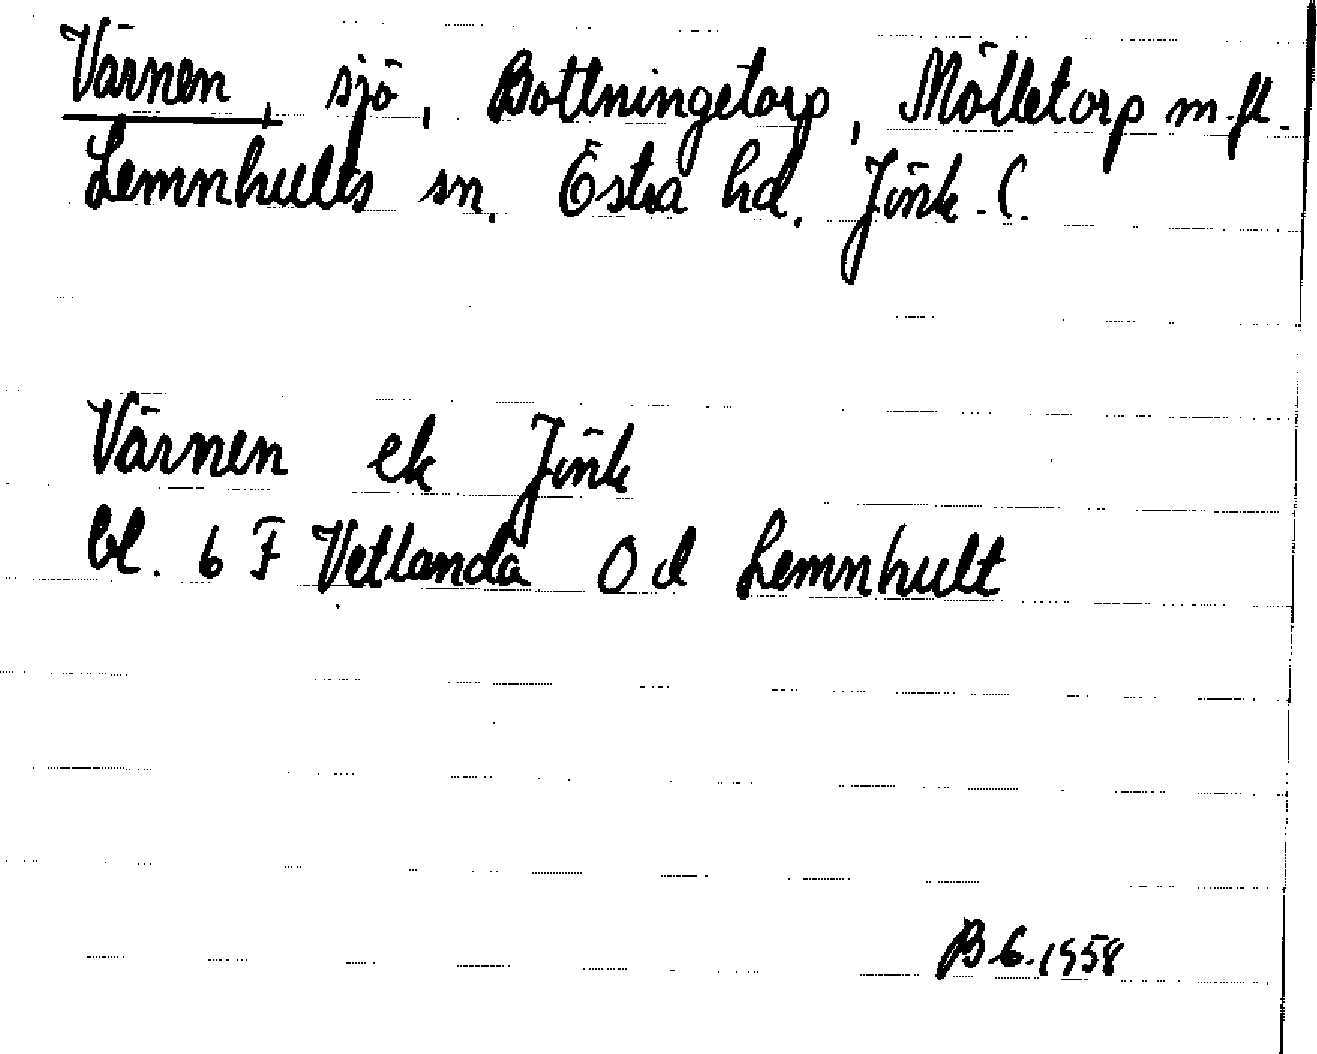 Värnen, sjö, Bottningetorp, Mölletorp m.fl.
Lemnhults sn. Östra hd. Jönk. l.
Värnen ek Jönk
bl. 6 F Vetlanda 0 d Lemnhult
1958